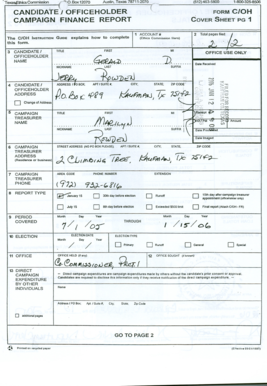 Texas Ethics Commission P.O. Box 12070 Austin, Texas 78711-2070 (512) 463-5800 1-800-325-8506
CANDIDATE / OFFICEHOLDER
CAMPAIGN FINANCE REPORT
FORM C/OH
COVER SHEET PG 1
The C/OH Instruction Guide explains how to complete this form.
1 ACCOUNT #
(Ethics Commission filers)
2 Total pages filed:
2 / 2
3 CANDIDATE / OFFICEHOLDER NAME
TITLE FIRST MI
GERALD D.
NICKNAME LAST SUFFIX
JERRY ROWDEN
OFFICE USE ONLY
Date Received
4 CANDIDATE / OFFICEHOLDER ADDRESS
ADDRESS / PO BOX; APT / SUITE #; CITY; STATE; ZIP CODE
P.O. BOX 489 KAUFMAN, TX 75142
Change of Address
5 CAMPAIGN TREASURER NAME
TITLE FIRST MI
MARILYN
NICKNAME LAST SUFFIX
ROWDEN
Date Imaged
6 CAMPAIGN TREASURER ADDRESS
(Residence or business)
STREET ADDRESS (NO PO BOX PLEASE); APT / SUITE #; CITY; STATE; ZIP CODE
2 CLIMBING TREE, KAUFMAN, TX 75142
7 CAMPAIGN TREASURER PHONE
AREA CODE PHONE NUMBER EXTENSION
(972) 932-6816
8 REPORT TYPE
January 15
30th day before election
Runoff
15th day after campaign treasurer appointment (officeholder only)
July 15
8th day before election
Exceeded $500 limit
Final report (Attach C/OH - FR)
9 PERIOD COVERED
Month Day Year
7 / 1 / 05
THROUGH
Month Day Year
1 / 15 / 06
10 ELECTION
ELECTION DATE
Month Day Year
ELECTION TYPE
Primary
Runoff
General
Special
11 OFFICE
OFFICE HELD (if any)
Co. COMMISSIONER, PRCT. 1
12 OFFICE SOUGHT (if known)
13 DIRECT CAMPAIGN EXPENDITURE BY OTHER INDIVIDUALS
Name
Address / PO Box; Apt. / Suite #; City; State; Zip Code
additional pages
GO TO PAGE 2